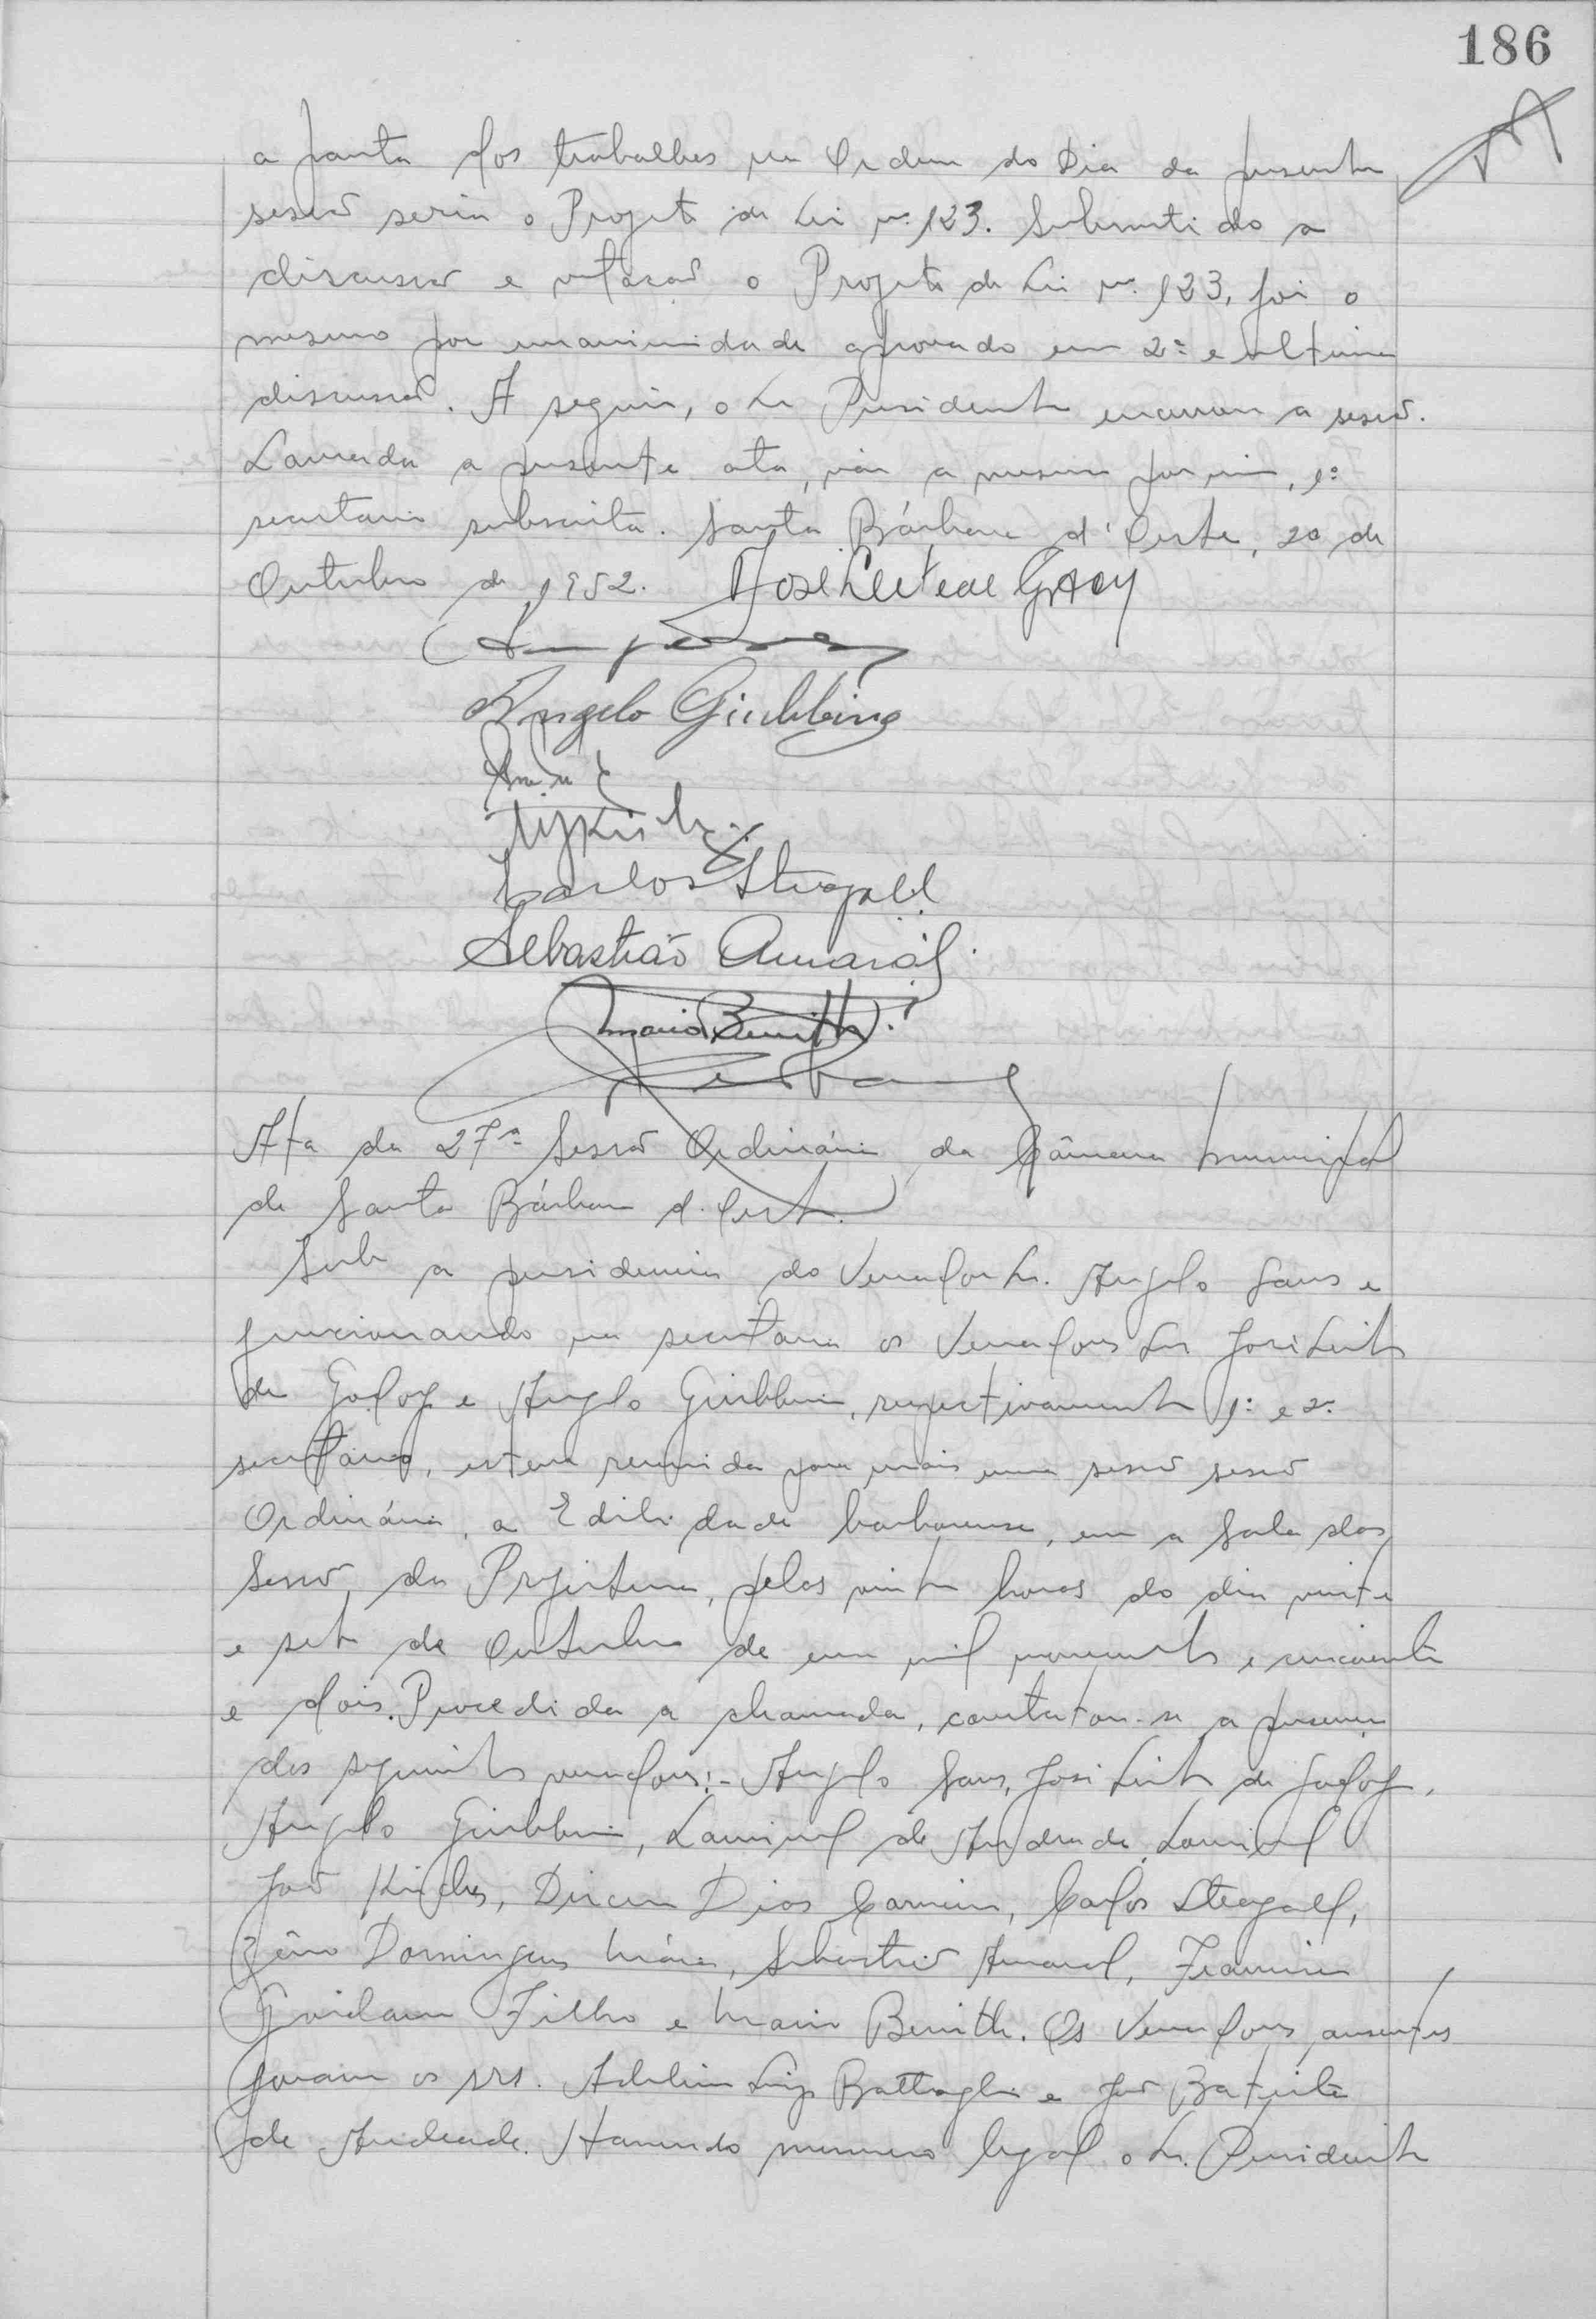 186
a pauta dos trabalhos na Ordem do Dia da presente
sessão seria o Projeto de Lei nº 123. Submetido a
discussão e votação o Projeto de Lei nº 123, foi o
mesmo por unanimidade aprovado em 2ª e ultima
discussão. A seguir, o Sr Presidente encerrou a sessão.
Lavrada a presente ata, vai a mesma por mim, 1º
secretario subscrita. Santa Bárbara d'Oeste, 20 de
Outubro de 1952. José Leite de Godoy
Angelo Giubbina
Carlos Steagall
Sebastião Amaral
Mario Benith
Ata da 27ª Sessão Ordinária da Câmara Municipal
de Santa Bárbara d. Oeste.
Sob a presidencia do Vereador Sr. Angelo Sans e
funcionando na secretaria os Vereadores Srs José Leite
de Godoy e Angelo Giubbina, respectivamente 1º e 2º
secretários, esteve reunida para mais uma sessão sessão
Ordinária, a Edilidade barbarense, em a Sala das
Sessões, da Prefeitura, pelas vinte horas do dia vinte
e sete de Outubro de um mil novecentos e cincoenta
e dois. Procedida a chamada, constatou-se a presença
dos seguintes vereadores:- Angelo Sans, José Leite de Godoy,
Angelo Giubbina, Lourival de Andrade, Lourival
João Dirceu Dias Carneiro, Carlos Steagall,
Zêno Domingues Máia, Sebastião Amaral, Francisco
Filho e Mario Benith. Os Vereadores ausentes
foram os srs. Adelino Luiz Battaglia e João Batista
de Andrade. Havendo numero legal o Sr. Presidente